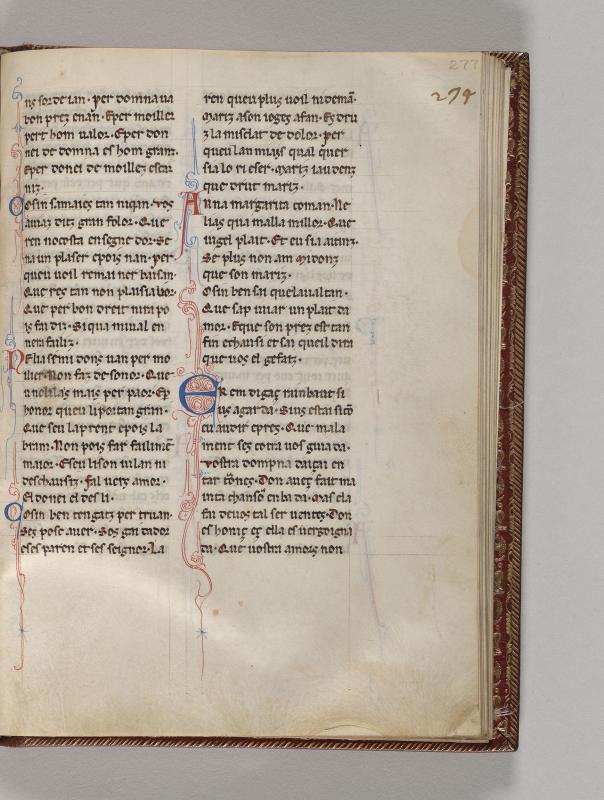 277
274
nz sor de ian · per domna ua
bon prez enan · Eper moiller
pert hom ualor · Eper don
nei de domna es hom granz.
Eper donei de moillez escar
niz ·
Osin famaiez tan niqan · uos
amaz ditz gran folor · Que
ren nocosta ensegne dor · Se
na un plaser epois nan · per
queu uoil remaner baisan
Que res tan non plaisia uor
Que per bon dreit nim po
is fadiz · Siqua miual en
nem failiz ·
Nelias semi dons uan per mo
iller · Non faz desonor · Que
honor queu li portan gran ·
Que seu la prent epois la
bram · Non pois far faillimēt
maior · Eseu lison iulan ni
deschausitz · fal uerz amor ·
El donei el des li ·
Osin ben tengatz per truan ·
Ses pose auer · Sos gardador
eses paren et ses seignor · La
ren queu plus uoil ni demā ·
Maritz a son ioges afan · Ez dru
z la misclat de dolor · per
queu lan mais qual quer
sia lo ri eser · Maritz iauzenz
que drut maritz ·
Anna margarita coman · Ne
lias qua malla millor · Que
iugel plait · Et eu sia autrz ·
Se plus non am midonz
que son maritz ·
Osin ben sai quela ual tan ·
Que sap uiuar un plait da
mor · Eque son prez es tan
fin echausi et sai queil dira
que uos el gesatz ·
Er em digaz rainbaut si
uis agarda · Suis estai sicō
eu audir epres · Que mala
ment ses cotra uos guiada ·
vostra dompna daicai en
tar tones · Don auez fait ma
inta chansō enbada · Mas ela
fai deuos tal ser uentes · Don
es honiz ez ella es uergoigna
da · Que uostra amors non